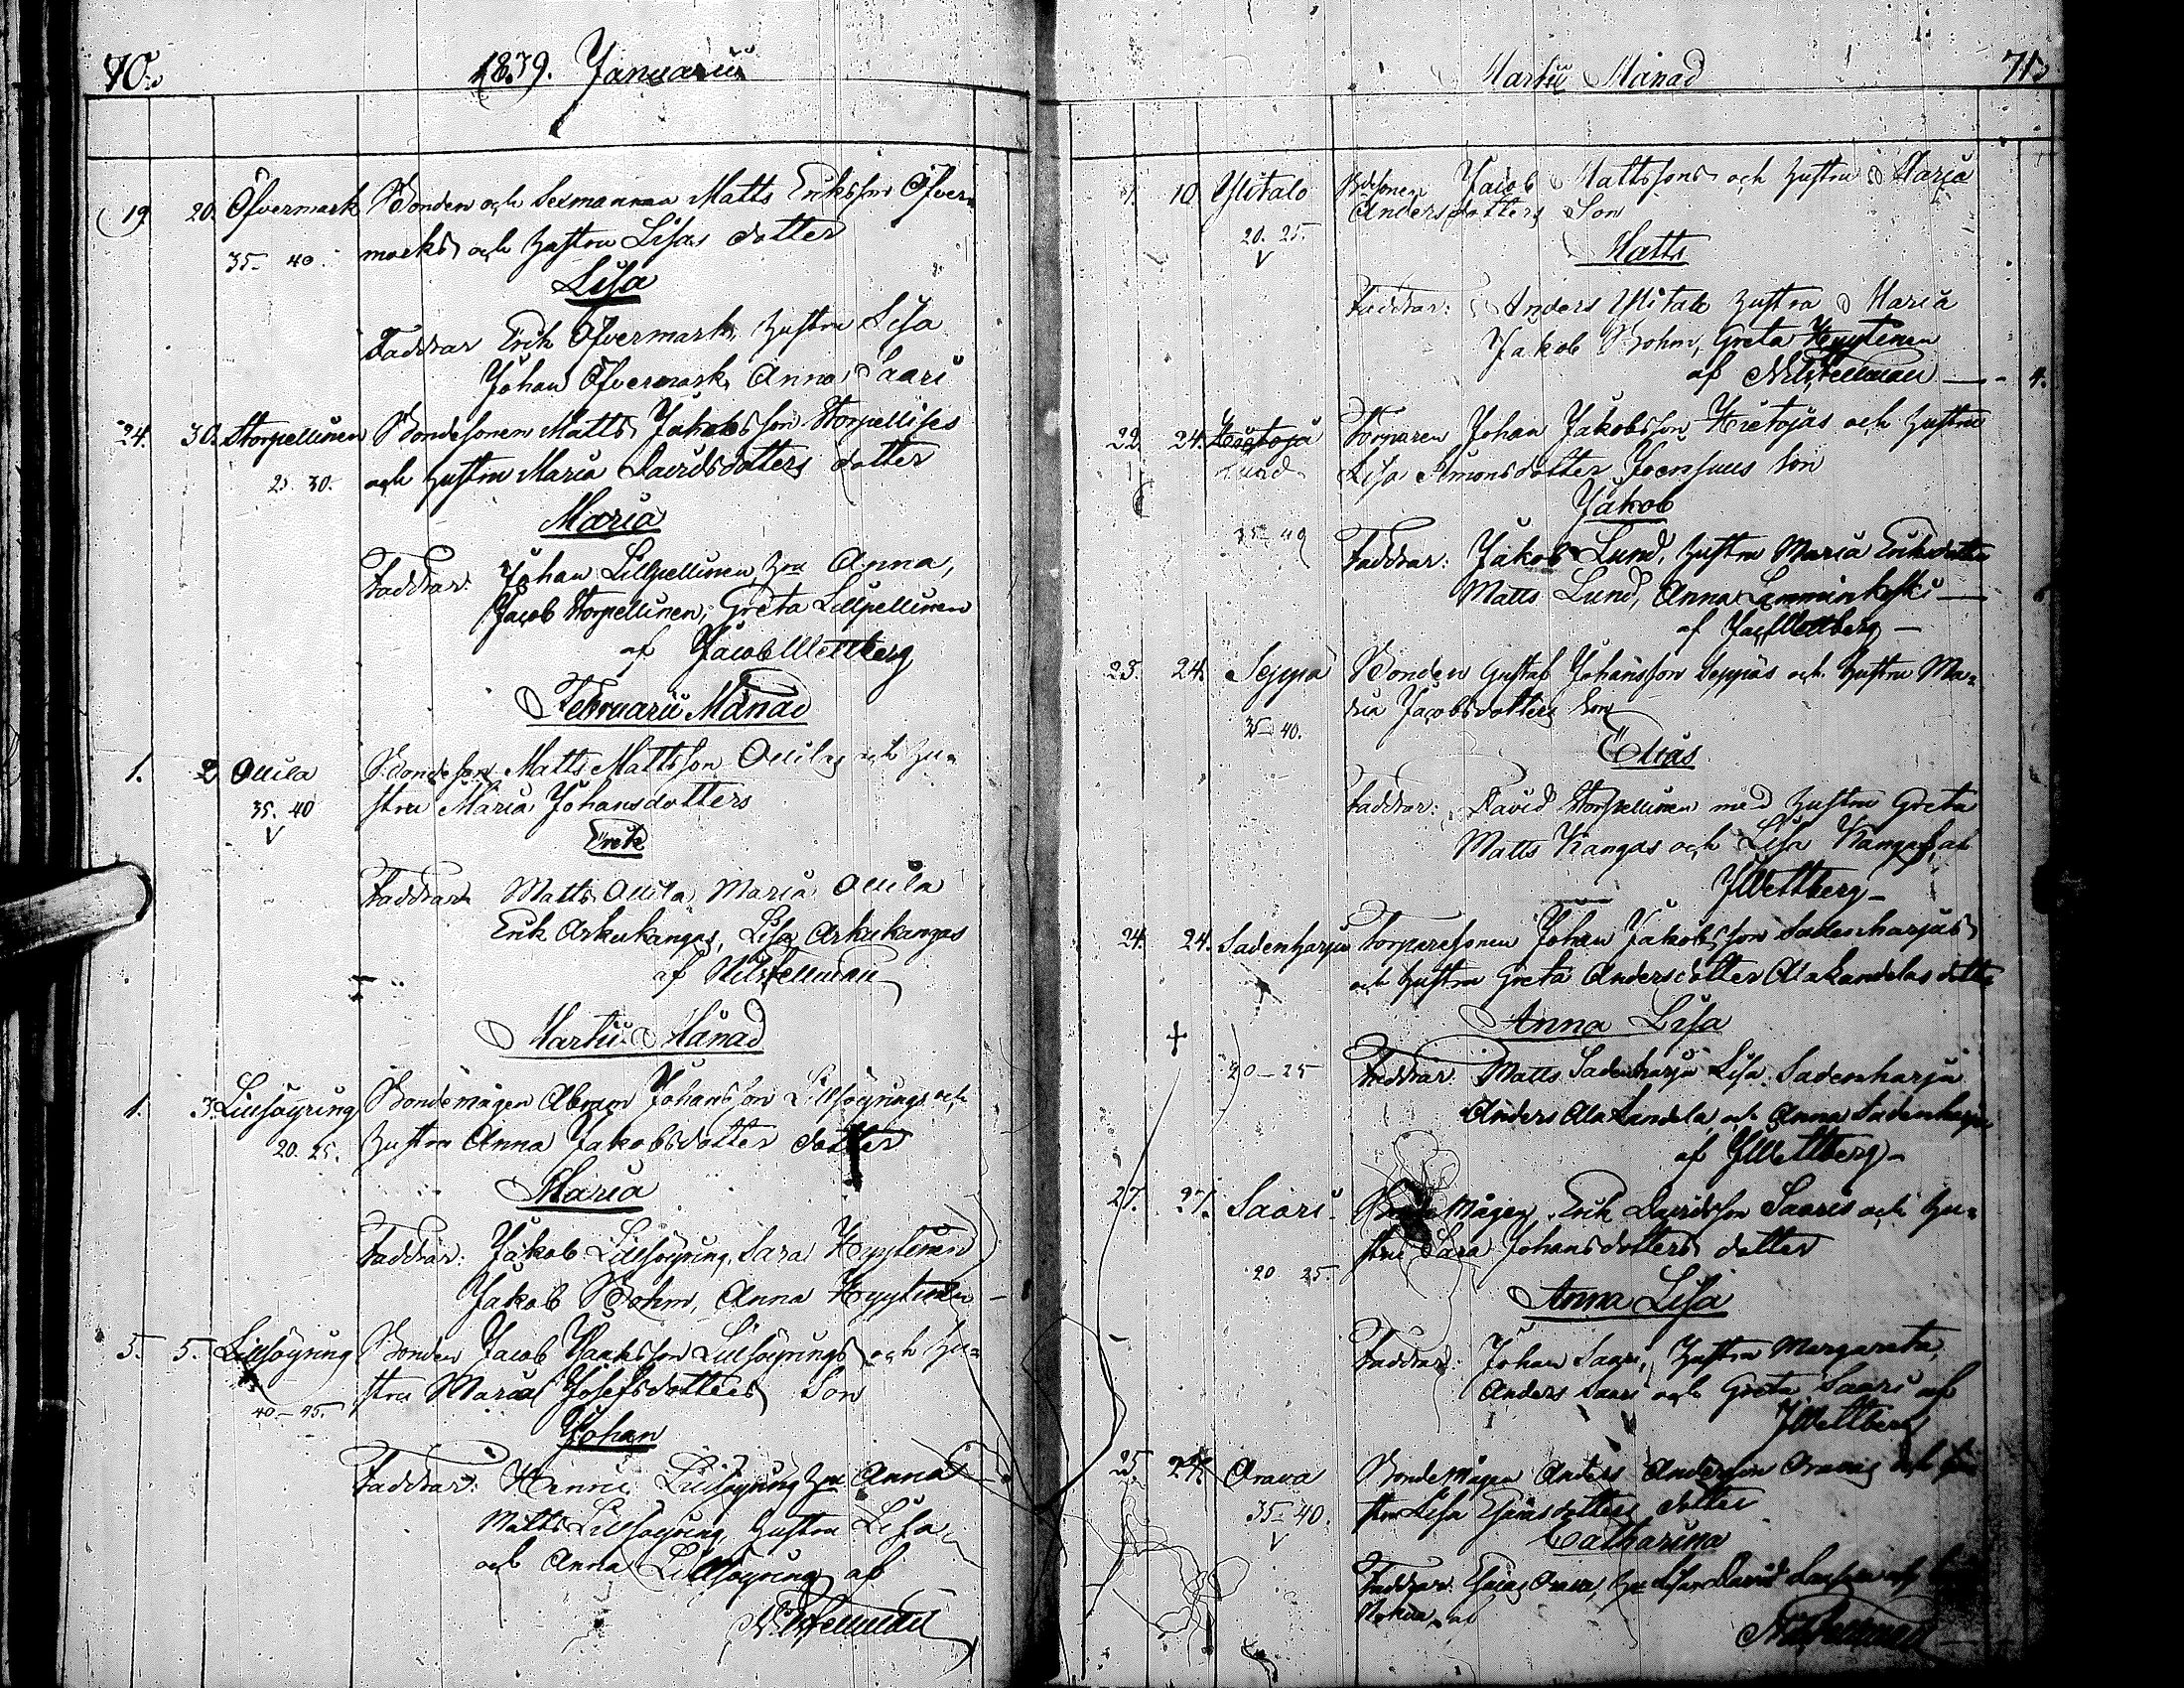 70.
1839. Januarii
19 20. Öfvermark Bonden och Sexmannen Matts Eriksson Öfver=
35-40. marks och hustru Lisas dotter
Lisa
Faddrar Erik Öfvermark, hustru Lisa
Johan Öfvermark, Anna Saari
24. 30. Storpellinen Bondesonen Matts Jakobsson Storpellises
25-30. och hustru Maria Davidsdotters dotter
Maria
Faddrar: Johan Lillpellinen, hru Anna,
Jacob Storpellinen, Greta Lillpellinen
af Jacob Wettberg
Februarii Månad
1. 2 Ollila Bondeson Matts Mattsson Ollilas och hu=
35.40 stru Maria Johansdotters
V
Erik
Faddrar Matts Ollila Maria Ollila
Erik Arkukangas, Lisa Arkukangas
af
Martii Månad
1. 3. Lillsöyring Bondemågen Abram Johansson Lillsöyrings och
20.25. hustru Anna Jakobsdotter dotter
Maria
Faddrar: Jakob Lillsöyring, Sara Hyytinen
Jakob Bohm, Anna Hyytinen
5. 5. Lillsöyring Bonden Jacob Lillsöyrings och hu=
40-45. stru Maria Josefsdotters Son
Johan
Faddrar: Henric Lillsöyring hru Anna
Matts Lillsöyring, hustru Lisa,
och Anna Lillsöyring af
Martii Månad
71
10 Ylitalo Bdesonen Jacob Mattssons och hustru Maria
Andersdotters Son
20. 25.
V
Matts
Faddrar: Anders Ylitalo hustru Maria
Jakob Bohm, Greta Hyytinen
af
4.
22. 24. Torparen Johan Jakobsson Hietojas och hustru
Lund Lisa Simonsdotter son
Jakob
35-40 Faddrar: Jakob Lund, hustru Maria Eriksdotter
Matts Lund, Anna Lamminkoski
af Jac Wettberg
23. 24. Seppä Bonden Gustaf Johansson Seppäs och hustru Ma=
ria Jacobsdotters son
35-40.
Elias
Faddrar: David Storpellinen med hustru Greta
Matts Kangas och Lisa Kangas, af
JWettberg
24. 24. Sadenharju Torparesonen Johan Jakobsson Sadenharjus
och hustru Greta Andersdotter Alakandelas dotter
Anna Lisa
+
20-25 Faddrar: Matts Sadenharju Lisa Sadenharju
Anders Alakandela, och Anna Sadenharju
af JWettberg
27. 27. Saari Bondemågen Erik Davidsson Saaris och hu=
stru Sara Johansdotters dotter
20 25.
Anna Lisa
Faddrar: Johan Saari, hustru Margareta,
Anders Saari och Greta Saari af
JWettberg
25 Orava Bondemågen Anders Andersson Oravas och hu
35-40. stru Lisa Esaiasdotters dotter
V
Catharina
Faddrar: Esaias Orava, hru Lisa David
af